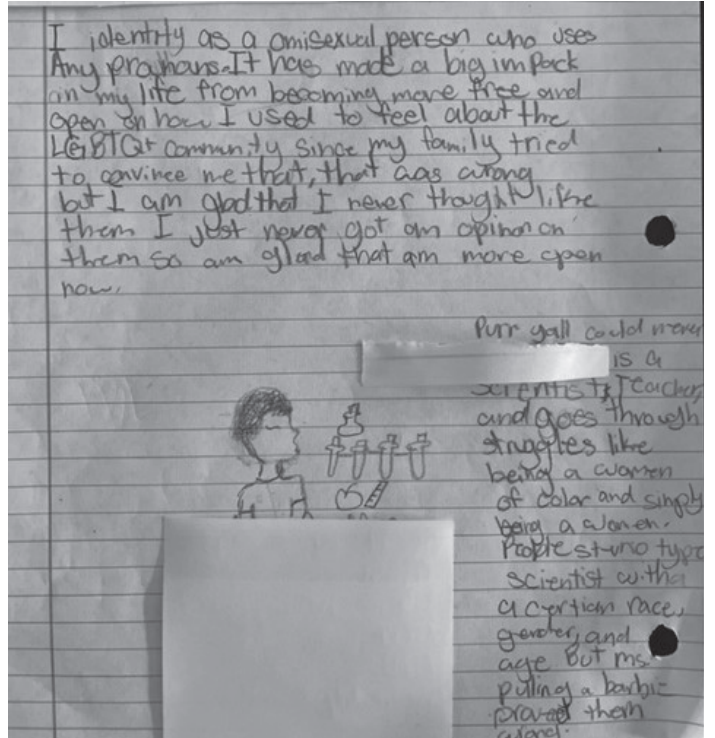 I identity as a omisexual person who uses
Any pronouns. It has made a big impack
on my life from becoming more free and
open on how I used to feel about the
LGBTQ+ community since my family tried
to convince me that, that was wrong
but I am glad that I never thought like
them I just never got an opinon on
them so am glad that am more open
now.
Purr yall could never
is a
scientist, Teacher,
and goes through
struggles like
being a women
of color and simply
being a women.
People st
scientist with
a certian race,
gender, and
age But ms
pulling a barbie
proved them
wrong.